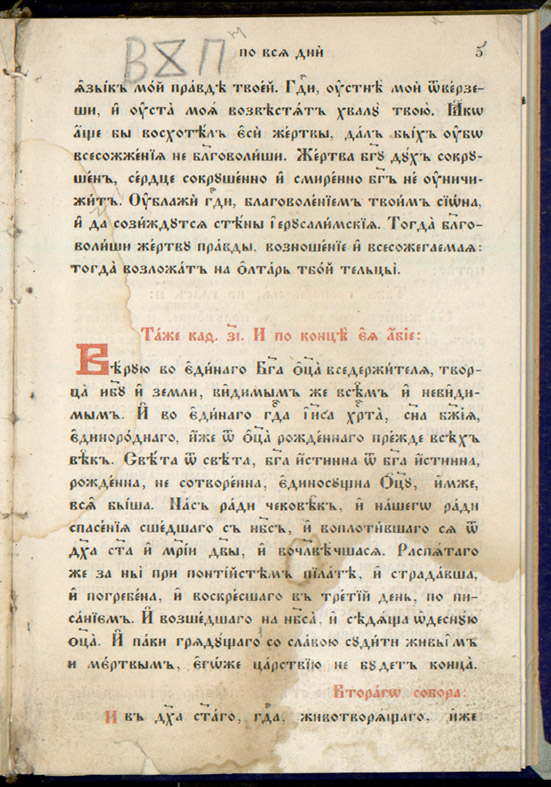 ВѰП
по всѧ дни 5
ѧ҆зы́къ мо́й пра́вдѣ твое́й. Гд҇и, ѹ҆стнѣ̀ моѝ ѿве́рзе-
ши, и҆ ѹ҆ста̀ моѧ̀ возвѣстѧ́тъ хвалу̀ твою̀. Ꙗ҆́кѡ
а҆́ще бы восхотѣ́лъ є҆сѝ же́ртвы, да́лъ бы́хъ ѹ҆́бѡ
всесожже́нїѧ не бл҃говоли́ши. Же́ртва бг҃у ду́хъ сокру-
ше́нъ, се́рдце сокруше́нно и҆ смире́нно бг҃ъ не ѹ҆ничи-
жи́тъ. Ѹ҆блажѝ гд҇и, благоволе́нїемъ твои́мъ сїѡ́на,
и҆ да сози́ждутсѧ стѣ́ны і҆ерусали́мскїѧ. Тогда̀ бл҃го-
воли́ши же́ртву пра́вды, возноше́нїе и҆ всесожега́емаѧ:
тогда̀ возложа́тъ на ѻ҆лта́рь тво́й тельцы̀.
Та́же каѳ. з҃і. И по концѣ̀ є҆ѧ̀ а҆́бїе:
Вѣ́рую во є҆ди́наго Бг҃а ѻ҆ц҃а̀ вседержи́телѧ, твор-
ца̀ нб҃у и҆ землѝ, ви́димымъ же всѣ̑мъ и҆ неви́ди-
мымъ. И҆ во є҆ди́наго гд҇а і҆и҃са хр҇та̀, сн҃а бж҃їѧ,
є҆диноро́днаго, и҆́же ѿ ѻ҆ц҃а̀ рожде́ннаго пре́жде всѣ́хъ
вѣ̑къ. Свѣ́та ѿ свѣ́та, бг҃а и҆́стинна ѿ бг҃а и҆́стинна,
рожде́нна, не сотворе́нна, є҆диносу́щна Ѻ҆ц҃у, и҆́мже,
всѧ̑ бы́ша. На́съ ра́ди чековѣ̑къ, и҆ на́шегѡ ра́ди
спасе́нїѧ сше́дшаго съ нб҃съ, и҆ воплоти́вшаго сѧ ѿ
дх҃а ст҃а и҆ мр҃їи дв҃ы, и҆ вочл҃вѣ́чшасѧ. Распѧ́таго
же за ны̀ при понті́йстѣмъ пїла́тѣ, и҆ страда́вша,
и҆ погребе́на, и҆ воскре́сшаго въ тре́тїй день, по пи-
са́нїемъ. И҆ возше́дшаго на нб҃са̀, и҆ сѣдѧ́ща ѡ҆десну́ю
ѻ҆ц҃а̀. И҆ па́ки грѧду́щаго со сла́вою суди́ти живы̑мъ
и ме́ртвымъ, є҆гѡ́же ца́рствїю не бу́детъ конца̀.
Втора́гѡ собора:
И въ дх҃а ст҃а́го, гд҇а, животворѧ́щаго, и҆́же